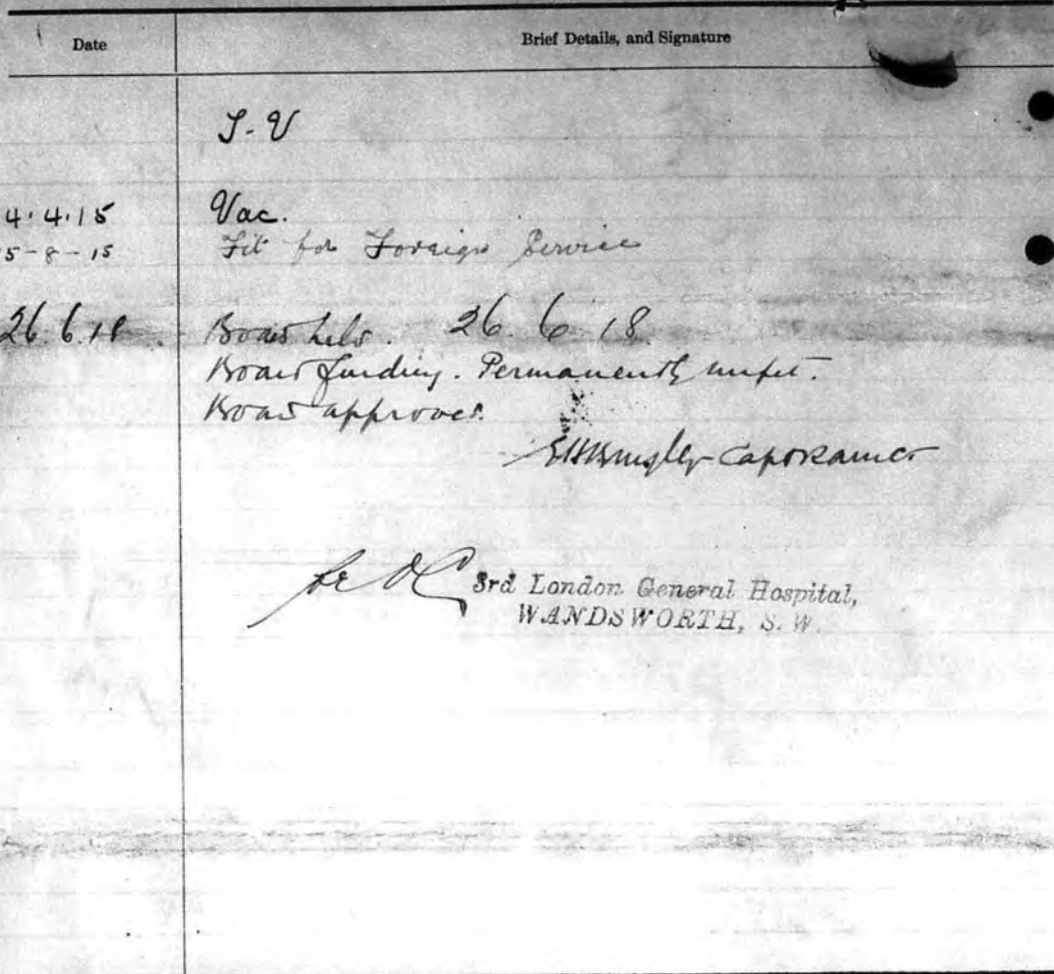 Date Brief Details, and Signature
4.4.15 Vac.
5-8-15 Fit for Foreign Service
26.6.18. Board held. 26.6.18.
Board finding. Permanently unfit.
Board approved.
Capt RAMC
for OC 3rd London General Hospital,
WANDSWORTH, S.W.